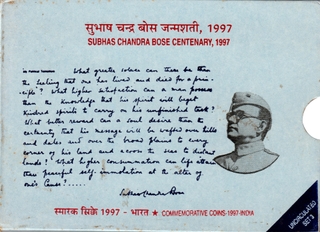 सुभाष चन्द्र बोस जन्मशती, 1997
SUBHAS CHANDRA BOSE CENTENARY, 1997
His Political Testament
What greater solace can there be than
the feeling that one has lived and died for a prin-
ciple? What higher satisfaction can a man possess
than the knowledge that his spirit will beget
kindred spirits to carry on his unfinished task?
What better reward can a soul desire than the
certainty that his message will be wafted over hills
and dales and over the broad plains to every
corner of his land and across the seas to distant
lands? What higher consummation can life attain
than peaceful self-immolation at the altar of
one's Cause?
Subhas Chandra Bose
स्मारक सिक्के 1997 - भारत ★ COMMEMORATIVE COINS-1997-INDIA
UNCIRCULATED
SET 3